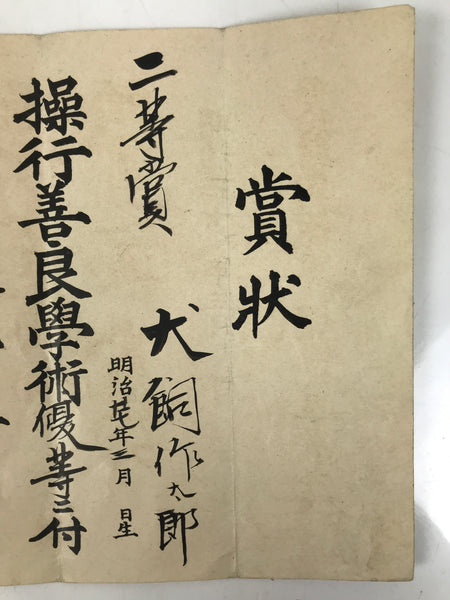 賞狀
二等賞
犬飼作太郎
明治廿七年三月 日生
操行善良學術優等ニ付